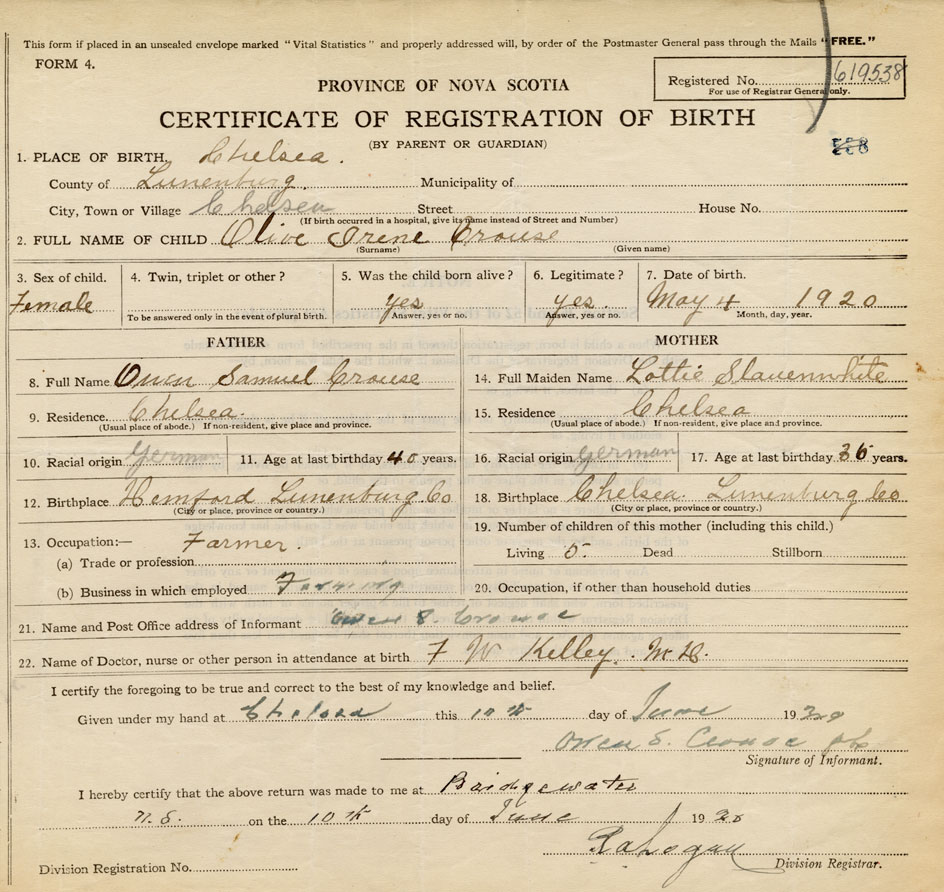 This form if placed in an unsealed envelope marked "Vital Statistics" and properly addressed will, by order of the Postmaster General pass through the Mails "FREE."
FORM 4.
Registered No. 619538
For use of Registrar General only.
PROVINCE OF NOVA SCOTIA
CERTIFICATE OF REGISTRATION OF BIRTH
(BY PARENT OR GUARDIAN)
1. PLACE OF BIRTH, Chelsea.
County of Lunenburg. Municipality of
City, Town or Village Chelsea Street House No.
(If birth occurred in a hospital, give its name instead of Street and Number)
2. FULL NAME OF CHILD Olive Irene Crouse
(Surname) (Given name)
3. Sex of child. 4. Twin, triplet or other? 5. Was the child born alive? 6. Legitimate? 7. Date of birth.
Female yes yes. May 4 1920
To be answered only in the event of plural birth. Answer, yes or no. Answer, yes or no. Month, day, year.
FATHER MOTHER
8. Full Name Owen Samuel Crouse 14. Full Maiden Name Lottie Slauenwhite
9. Residence. Chelsea. 15. Residence Chelsea
(Usual place of abode.) If non-resident, give place and province. (Usual place of abode.) If non-resident, give place and province.
10. Racial origin German 11. Age at last birthday 40 years. 16. Racial origin German 17. Age at last birthday 36 years.
12. Birthplace Hemford Lunenburg Co 18. Birthplace Chelsea. Lunenburg Co
(City or place, province or country.) (City or place, province or country.)
13. Occupation:— Farmer. 19. Number of children of this mother (including this child.)
(a) Trade or profession Living 5. Dead Stillborn
(b) Business in which employed Farming 20. Occupation, if other than household duties
21. Name and Post Office address of Informant Owen S. Crouse
22. Name of Doctor, nurse or other person in attendance at birth F W Kelley. M D.
I certify the foregoing to be true and correct to the best of my knowledge and belief.
Given under my hand at Chelsea this 10th day of June 19
Owen S. Crouse
Signature of Informant.
I hereby certify that the above return was made to me at Bridgewater
N.S. on the 10th day of June 1920
Division Registration No. Division Registrar.